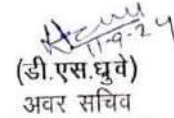 11-9-24
(डी.एस.घुर्वे)
अवर सचिव